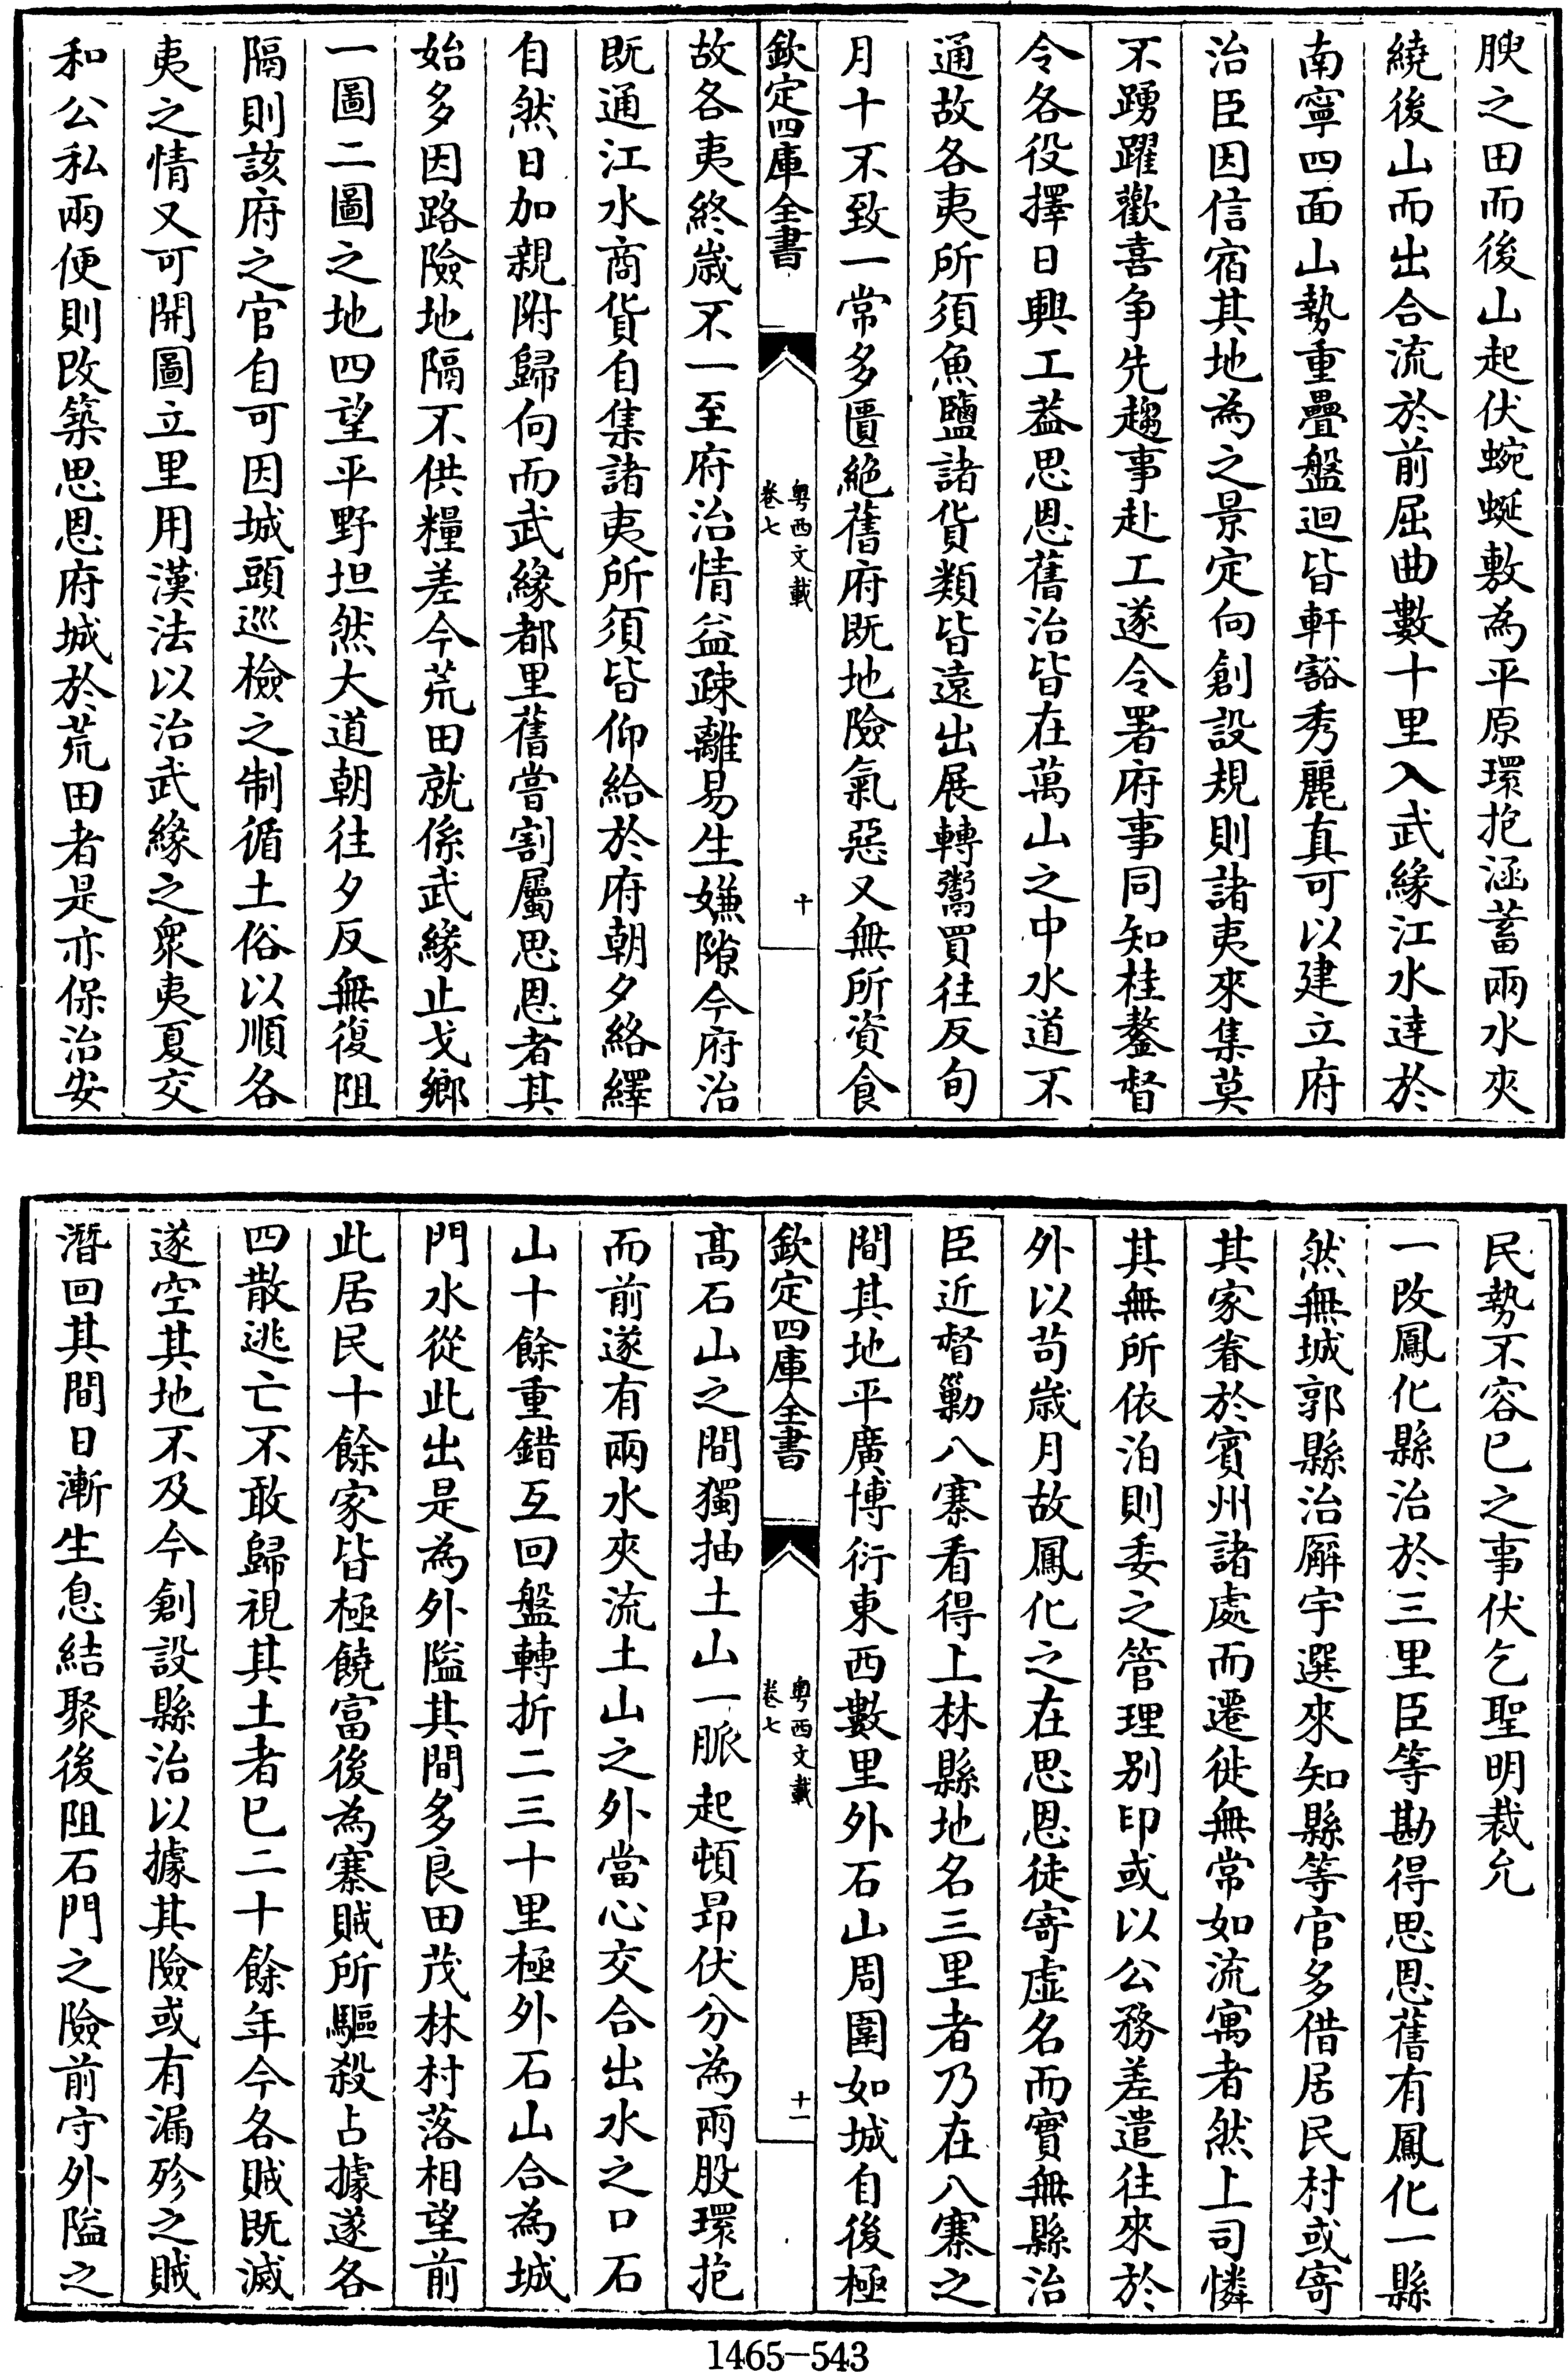 腴之田而後山起伏蜿蜒敷為平原環抱涵蓄兩水夾
繞後山而出合流於前屈曲數十里入武緣江水達於
南寧四面山勢重疊盤迴皆軒豁秀麗真可以建立府
治臣因信宿其地為之景定向創設規則諸夷來集莫
不踴躍歡喜争先趨事赴工遂令署府事同知桂鏊督
令各役擇日興工葢思恩舊治皆在萬山之中水道不
通故各夷所須魚鹽諸貨類皆遠出展轉鬻買往反旬
月十不致一常多匱絶舊府既地險氣惡又無所資食
欽定四庫全書
粤西文載
卷七
十
故各夷終嵗不一至府治情益疎離易生嫌隙今府治
既通江水商貨自集諸夷所須皆仰給於府朝夕絡繹
自然日加親附歸向而武緣都里舊嘗割屬思恩者其
始多因路險地隔不供糧差今荒田就係武緣止戈鄉
一圖二圖之地四望平野坦然大道朝往夕反無復阻
隔則該府之官自可因城頭巡檢之制循土俗以順各
夷之情又可開圖立里用漢法以治武緣之衆夷夏交
和公私兩便則改築思恩府城於荒田者是亦保治安
民勢不容已之事伏乞聖明裁允
一改鳳化縣治於三里臣等勘得思恩舊有鳳化一縣
然無城郭縣治廨宇選來知縣等官多借居民村或寄
其家眷於賓州諸處而遷徙無常如流寓者然上司憐
其無所依泊則委之管理别印或以公務差遣往來於
外以苟嵗月故鳳化之在思恩徒寄虚名而實無縣治
臣近督勦八寨看得上林縣地名三里者乃在八寨之
間其地平廣博衍東西數里外石山周圍如城自後極
欽定四庫全書
粤西文載
卷七
十一
高石山之間獨抽土山一脈起頓昂伏分為兩股環抱
而前遂有兩水夾流土山之外當心交合出水之口石
山十餘重錯互回盤轉折二三十里極外石山合為城
門水從此出是為外隘其間多良田茂林村落相望前
此居民十餘家皆極饒富後為寨賊所驅殺占據遂各
四散逃亡不敢歸視其土者已二十餘年今各賊既滅
遂空其地不及今創設縣治以據其險或有漏殄之賊
潛回其間日漸生息結聚後阻石門之險前守外隘之
1465-543